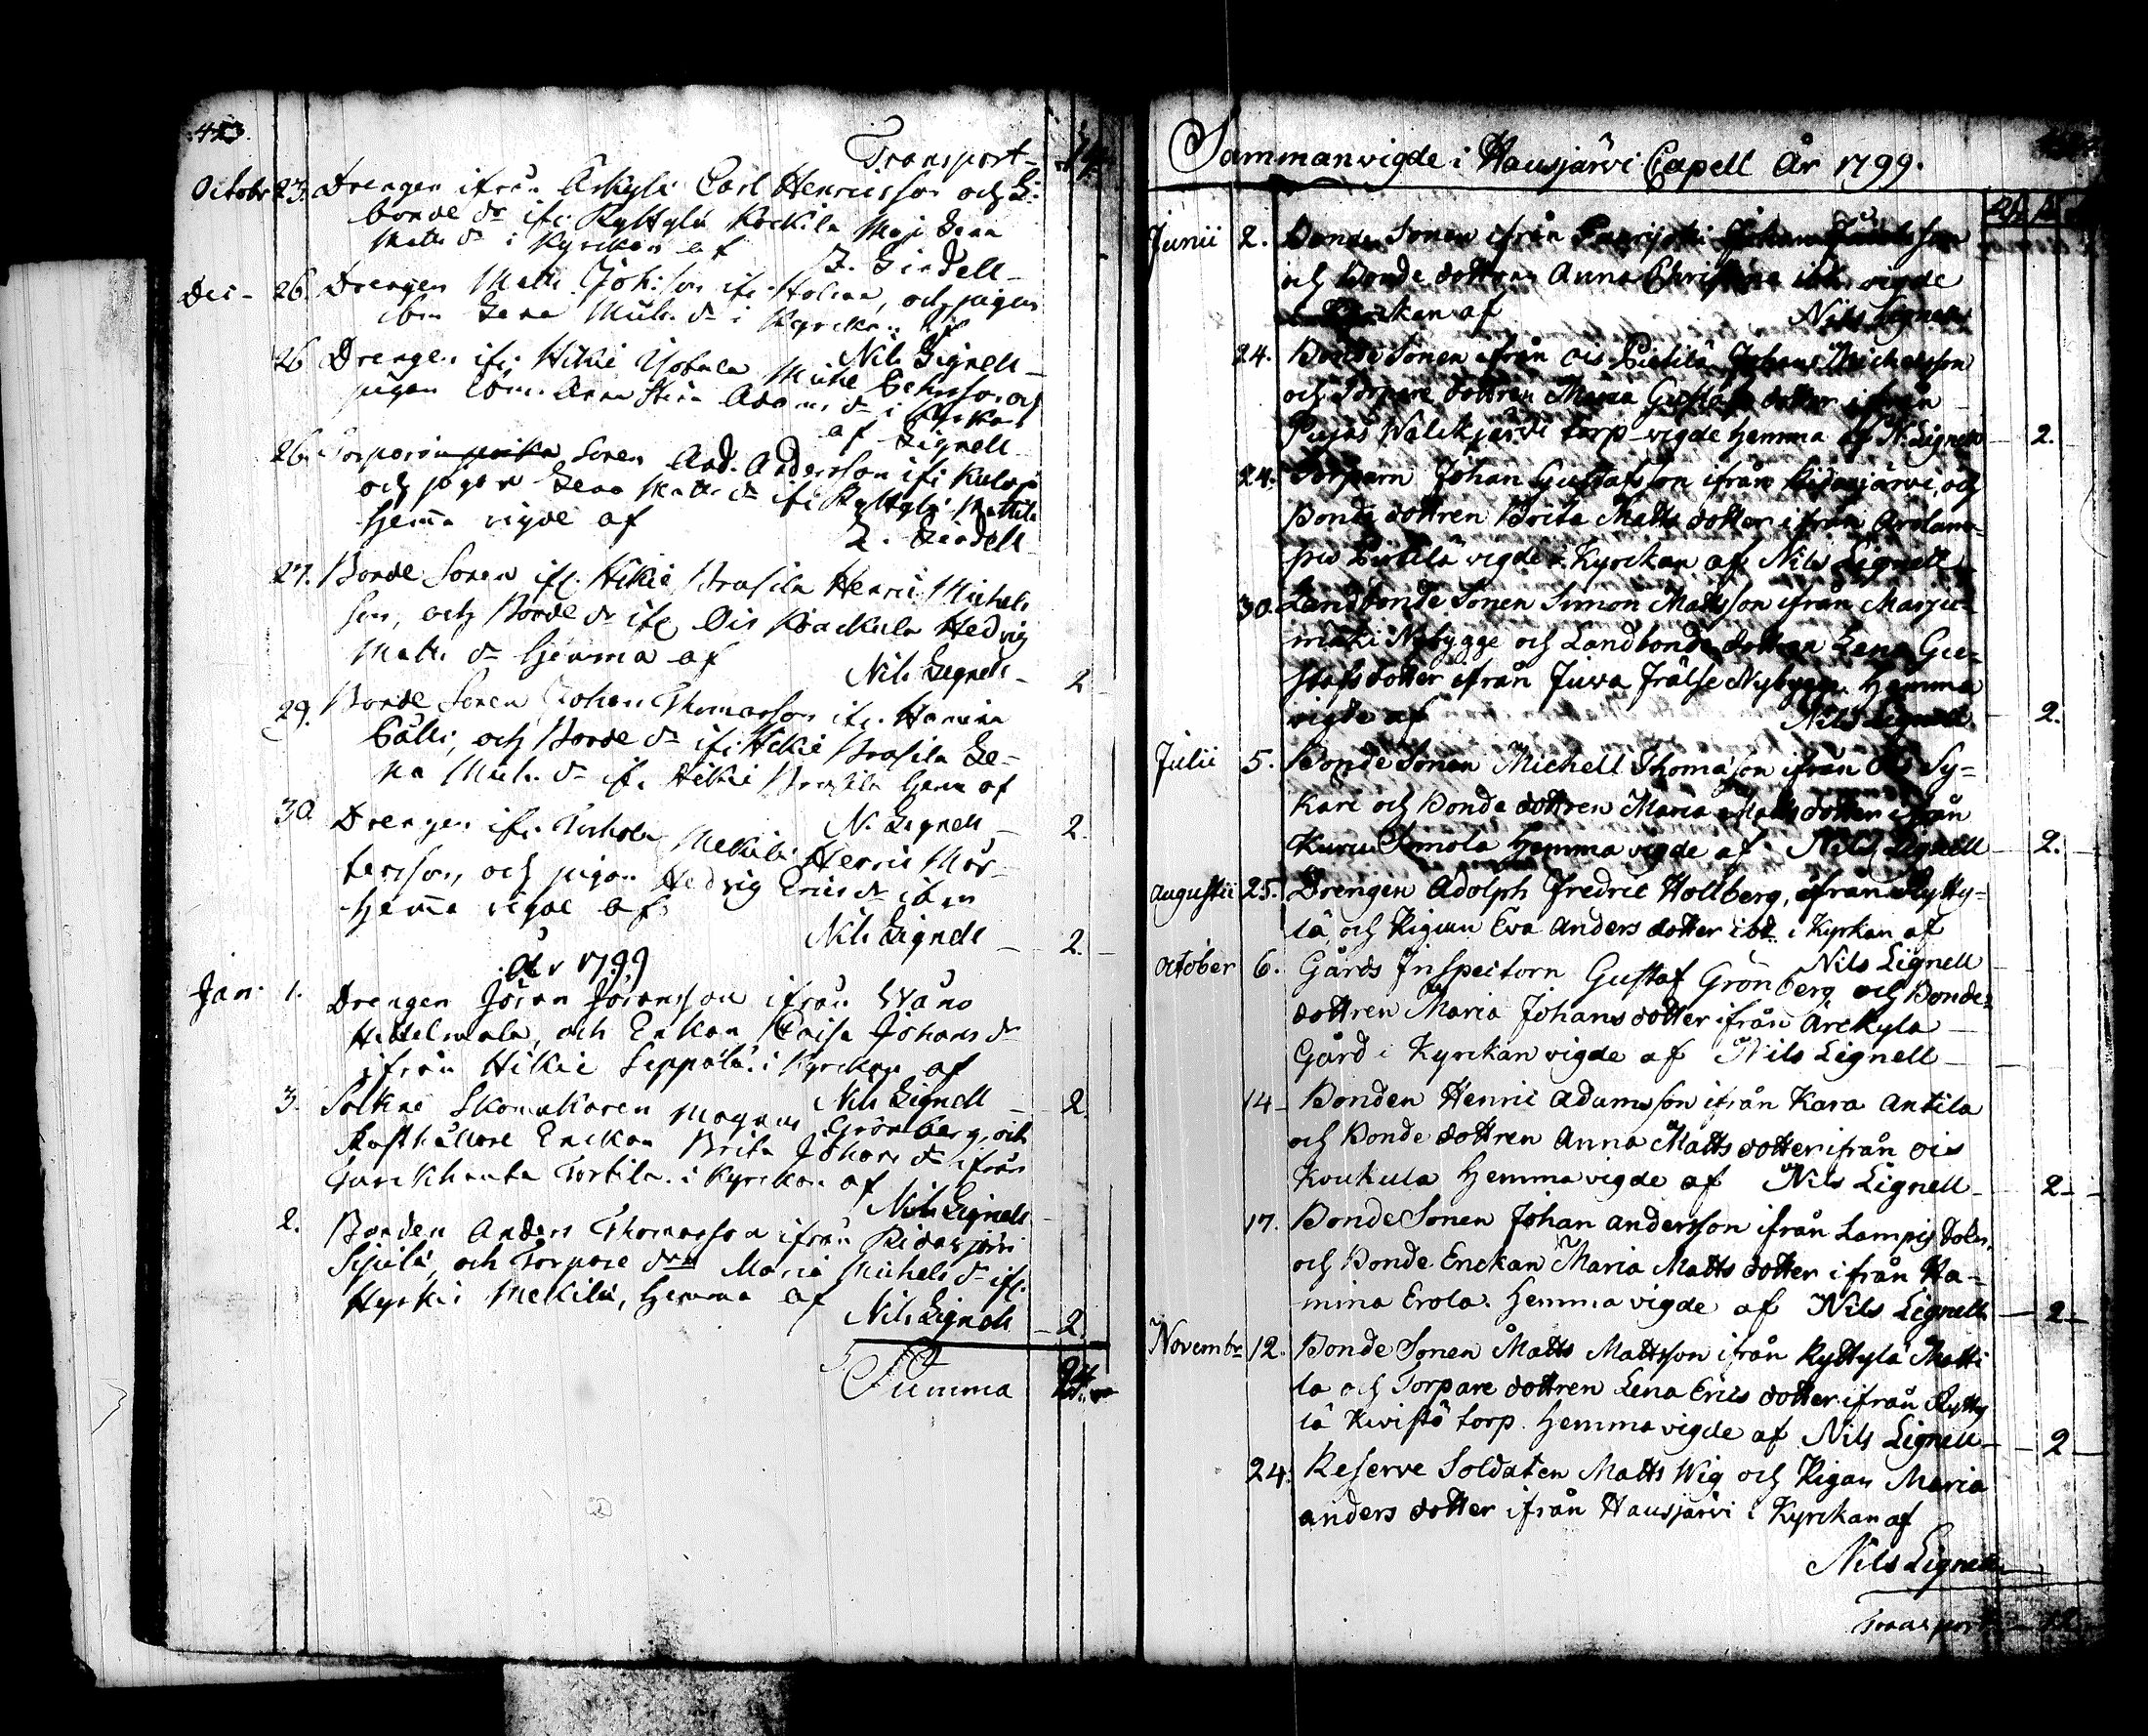 423.
Transport - 14
Octobr 23. Drengen ifrån Arkylä Carl Henricsson och L:
bonde dr ifr. Ryttylä Kockila Maja Lena
Matts dr i Kyrckan af
Z. Lindell
Dec - 26. Drengen Matts Joh:son ifr. och pigan
ibm Lena Mich. dr i Kyrckan af
Nils Lignell
26 Drengen ifr. Hikie Yotula Michel och
pigan ibm. Anna Stina Adams dr i Kyrckan
af Lignell
26. Sonen And. Andersson ifr.
och pigan Lena Matts dr ifr. Ryttylä Mattila
hema vigde af
Z. Lindell
27. Bonde Sonen ifr. Hikie Prasila Henric Michels
son, och Bonde dr ifr. Ois Kaackula Hedvig
Matts dr hemma af
Nils Lignell - 2
29. Bonde Sonen Johan Thomasson ifr. Hamina
och Bonde dr ifr. Hikie Prasila Le-
na Mich. dr ifr. Hikie Prasila hema af
N. Lignell - 2.
30. Drengen ifr. Turhola Mekilä Henric Mår-
tensson, och pigan Hedvig Erics dr ibm
hema vigde af
Nils Lignell - 2.
År 1799
Jan. 1. Drengen Jöran Jöransson ifrån Wåno
och Enkan Caisa Johans dr
ifrån Hikie Seppälä i Kyrckan af
Nils Lignell - 2
3. Sockne Skomakaren Magnus Grönberg, och
Rusthållare Enckan Brita Johans dr ifrån
Turckhauta Tortila i Kyrckan af
Nils Lignell
2. Bonden Anders Thomasson ifrån Ridasjärvi
Sipilä, och Torpare drn Maria Michels dr ifr.
Hyrkis Mekilä, hemma af
Nils Lignell - 2.
Summa 24.
Sammanvigde i Hausjärvi Capell År 1799.
Junii 2. Bonde Sonen ifrån Johan
och Bonde dottren Anna Christina ibm vigde
i Kyrckan af Nils Lignell
24. Bonde Sonen ifrån Ois Pietilä Johan Michelsson
och Torpare dottren Maria Gustafs dotter ifrån
Pujas Walckjärvi torp vigde hemma af N. Lignell - 2.
24. Torparn Johan Gustafsson ifrån Ridasjärvi, och
Bonde dottren Brita Matts dotter ifrån Arolam-
pis Pietilä vigde i Kyrckan af Nils Lignell
30. Landbonde Sonen Simon Mattsson ifrån Marju-
mäki Nybygge och Landbonde dottren Lena Gu-
stafs dotter ifrån Juva Frälse Nybygge hemma
vigde af Nils Lignell - 2.
Julii 5. Bonde Sonen Michell Thomasson ifrån Ois Sy-
kari och Bonde dottren Maria Matts dotter ifrån
Kuru Simola hemma vigde af Nils Lignell - 2.
Augustii 25. Drengen Adolph Fredric Hollberg, ifrån Rytty-
lä, och Pigan Eva Anders dotter ibd. i Kyrkan af
Nils Lignell
October 6. Gårds Inspectorn Gustaf Grönberg, och Bonde-
dottren Maria Johans dotter ifrån Arckyla
Gård i Kyrckan vigde af Nils Lignell
14. Bonden Henric Adamsson ifrån Kara Antila
och Bonde dottren Anna Matts dotter ifrån Ois
Koukula hemma vigde af Nils Lignell - 2
17. Bonde Sonen Johan Andersson ifrån Lampis
och Bonde Enckan Maria Matts dotter ifrån Ha-
mina Erola. hemma vigde af Nils Lignell - 2
Novembr 12. Bonde Sonen Matts Mattsson ifrån Ryttylä Matti
la och Torpare dottren Lena Erics dotter ifrån Rytty
lä Kivistö torp. hemma vigde af Nils Lignell - 2
24. Reserve Soldaten Matts Wig och Pigan Maria
Anders dotter ifrån Hausjärvi i Kyrckan af
Nils Lignell
Transport - 12